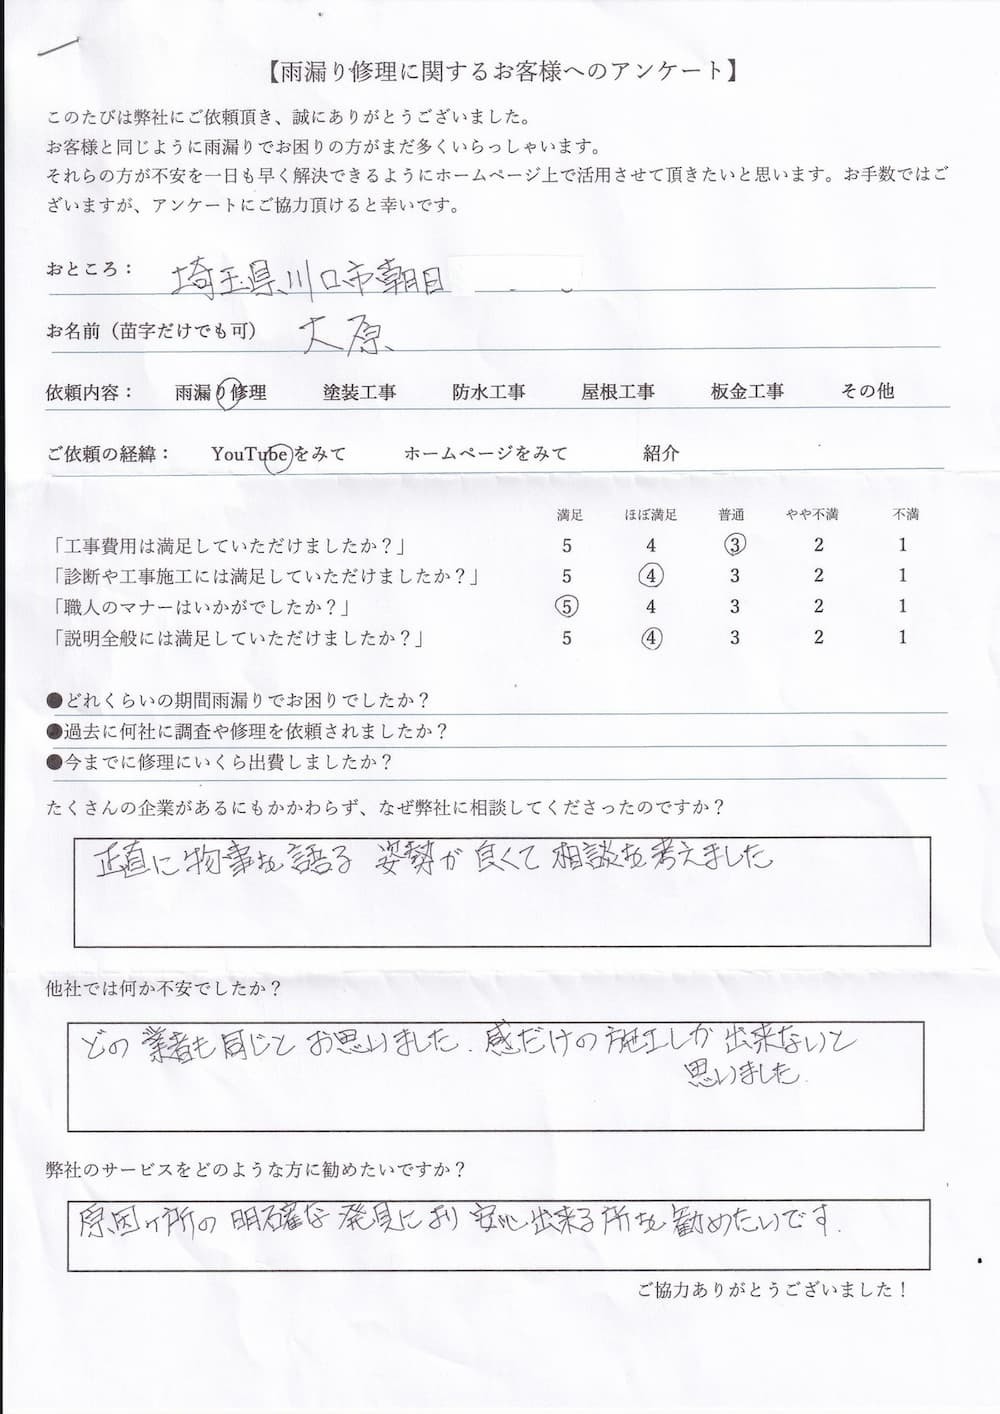 【雨漏り修理に関するお客様へのアンケート】
このたびは弊社にご依頼頂き、誠にありがとうございました。
お客様と同じように雨漏りでお困りの方がまだ多くいらっしゃいます。
それらの方が不安を一日も早く解決できるようにホームページ上で活用させて頂きたいと思います。お手数ではご
ざいますが、アンケートにご協力頂けると幸いです。
おところ： 埼玉県川口市朝日
お名前（苗字だけでも可） 大原
依頼内容： 雨漏り修理 塗装工事 防水工事 屋根工事 板金工事 その他
ご依頼の経緯： YouTubeをみて ホームページをみて 紹介
満足 ほぼ満足 普通 やや不満 不満
「工事費用は満足していただけましたか？」 5 4 3 2 1
「診断や工事施工には満足していただけましたか？」 5 4 3 2 1
「職人のマナーはいかがでしたか？」 5 4 3 2 1
「説明全般には満足していただけましたか？」 5 4 3 2 1
●どれくらいの期間雨漏りでお困りでしたか？
●過去に何社に調査や修理を依頼されましたか？
●今までに修理にいくら出費しましたか？
たくさんの企業があるにもかかわらず、なぜ弊社に相談してくださったのですか？
正直に物事を語る 姿勢が 良くて 相談を考えました
他社では何か不安でしたか？
どの業者も同じと お思いました. 感だけの施工しか出来ないと
思いました.
弊社のサービスをどのような方に勧めたいですか？
原因ヶ所の 明確な 発見により 安心出来る所を勧めたいです.
ご協力ありがとうございました！